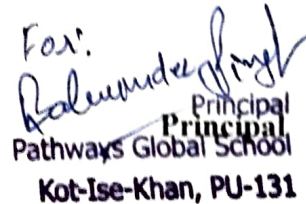 For:
Balwinder Singh
Principal
Principal
Pathways Global School
Kot-Ise-Khan, PU-131